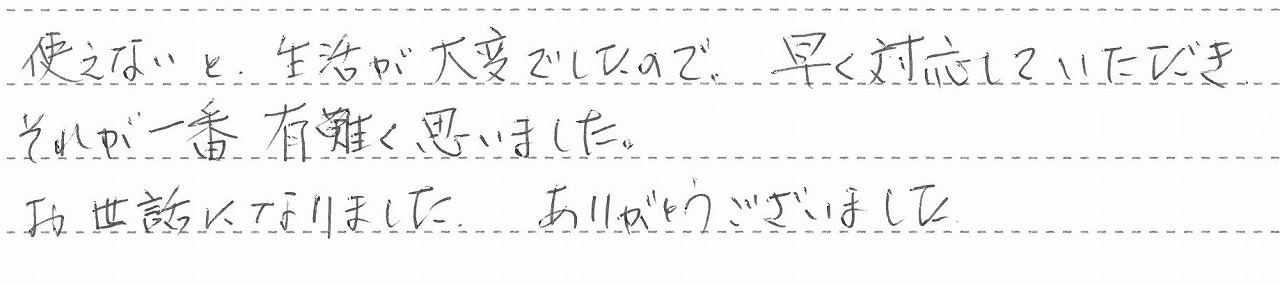 使えないと、生活が大変でしたので、早く対応していただき、
それが一番有難く思いました。
お世話になりました。ありがとうございました。